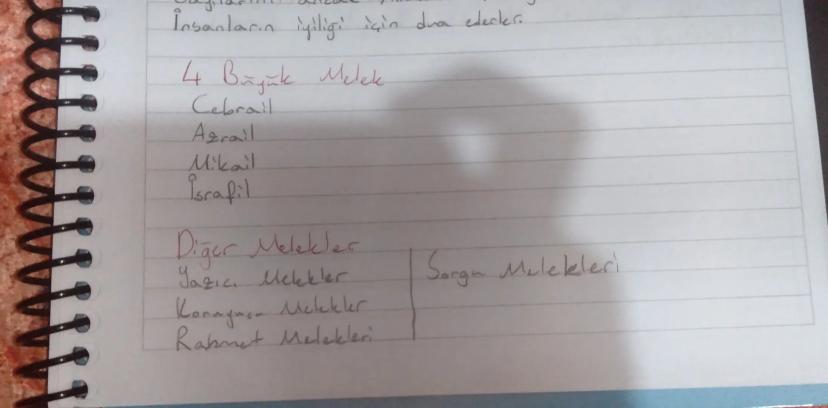 İnsanların iyiliği için dua ederler.
4 Büyük Melek
Cebrail
Azrail
Mikail
İsrafil
Diğer Melekler
Yazıcı Melekler
Koruyucu Melekler
Rahmet Melekleri
Sorgu Melekleri